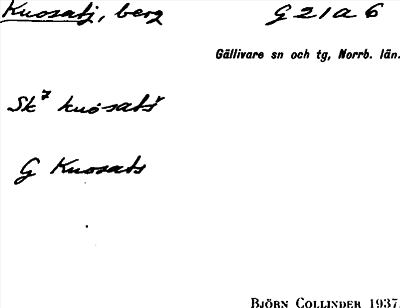 Kuosatj, berg G 21 a 6
Gällivare sn och tg, Norrb. län.
Sk⁷ kuosatš
G Kuosats
BJÖRN COLLINDER 1937.